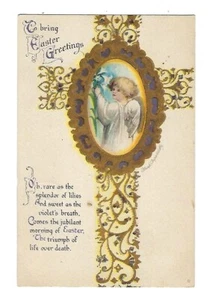 To bring
Easter
Greetings.
Oh, rare as the
splendor of lilies
And sweet as the
violet's breath,
Comes the jubilant
morning of Easter,
The triumph of
life over death.